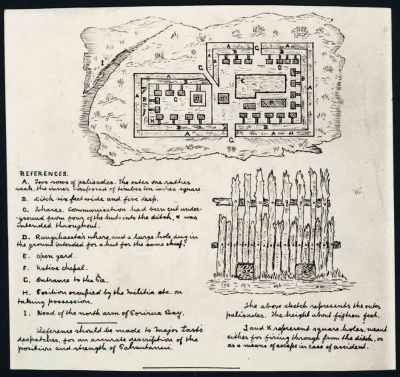 REFERENCES.
A. Two rows of palisades. The outer one rather
weak, the inner composed of timber ten inches square.
B. Ditch six feet wide and five deep.
C. Whares. Communication had been cut under-
ground from four of the huts into the ditch, & was
intended throughout.
D. Rangihaeata's whare, and a large hole dug in
the ground intended for a hut for the same chief.
E. Open yard.
F. Native chapel.
G. Entrance to the Pa.
H. Position occupied by the Militia etc. on
taking possession.
I. Head of the north arm of Porirua Bay.
Reference should be made to Major Last's
despatches, for an accurate description of the
position and strength of
The above sketch represents the outer
palisades. The height about fifteen feet.
J and K represent square holes, meant
either for firing through from the ditch, or
as a means of escape in case of accident.